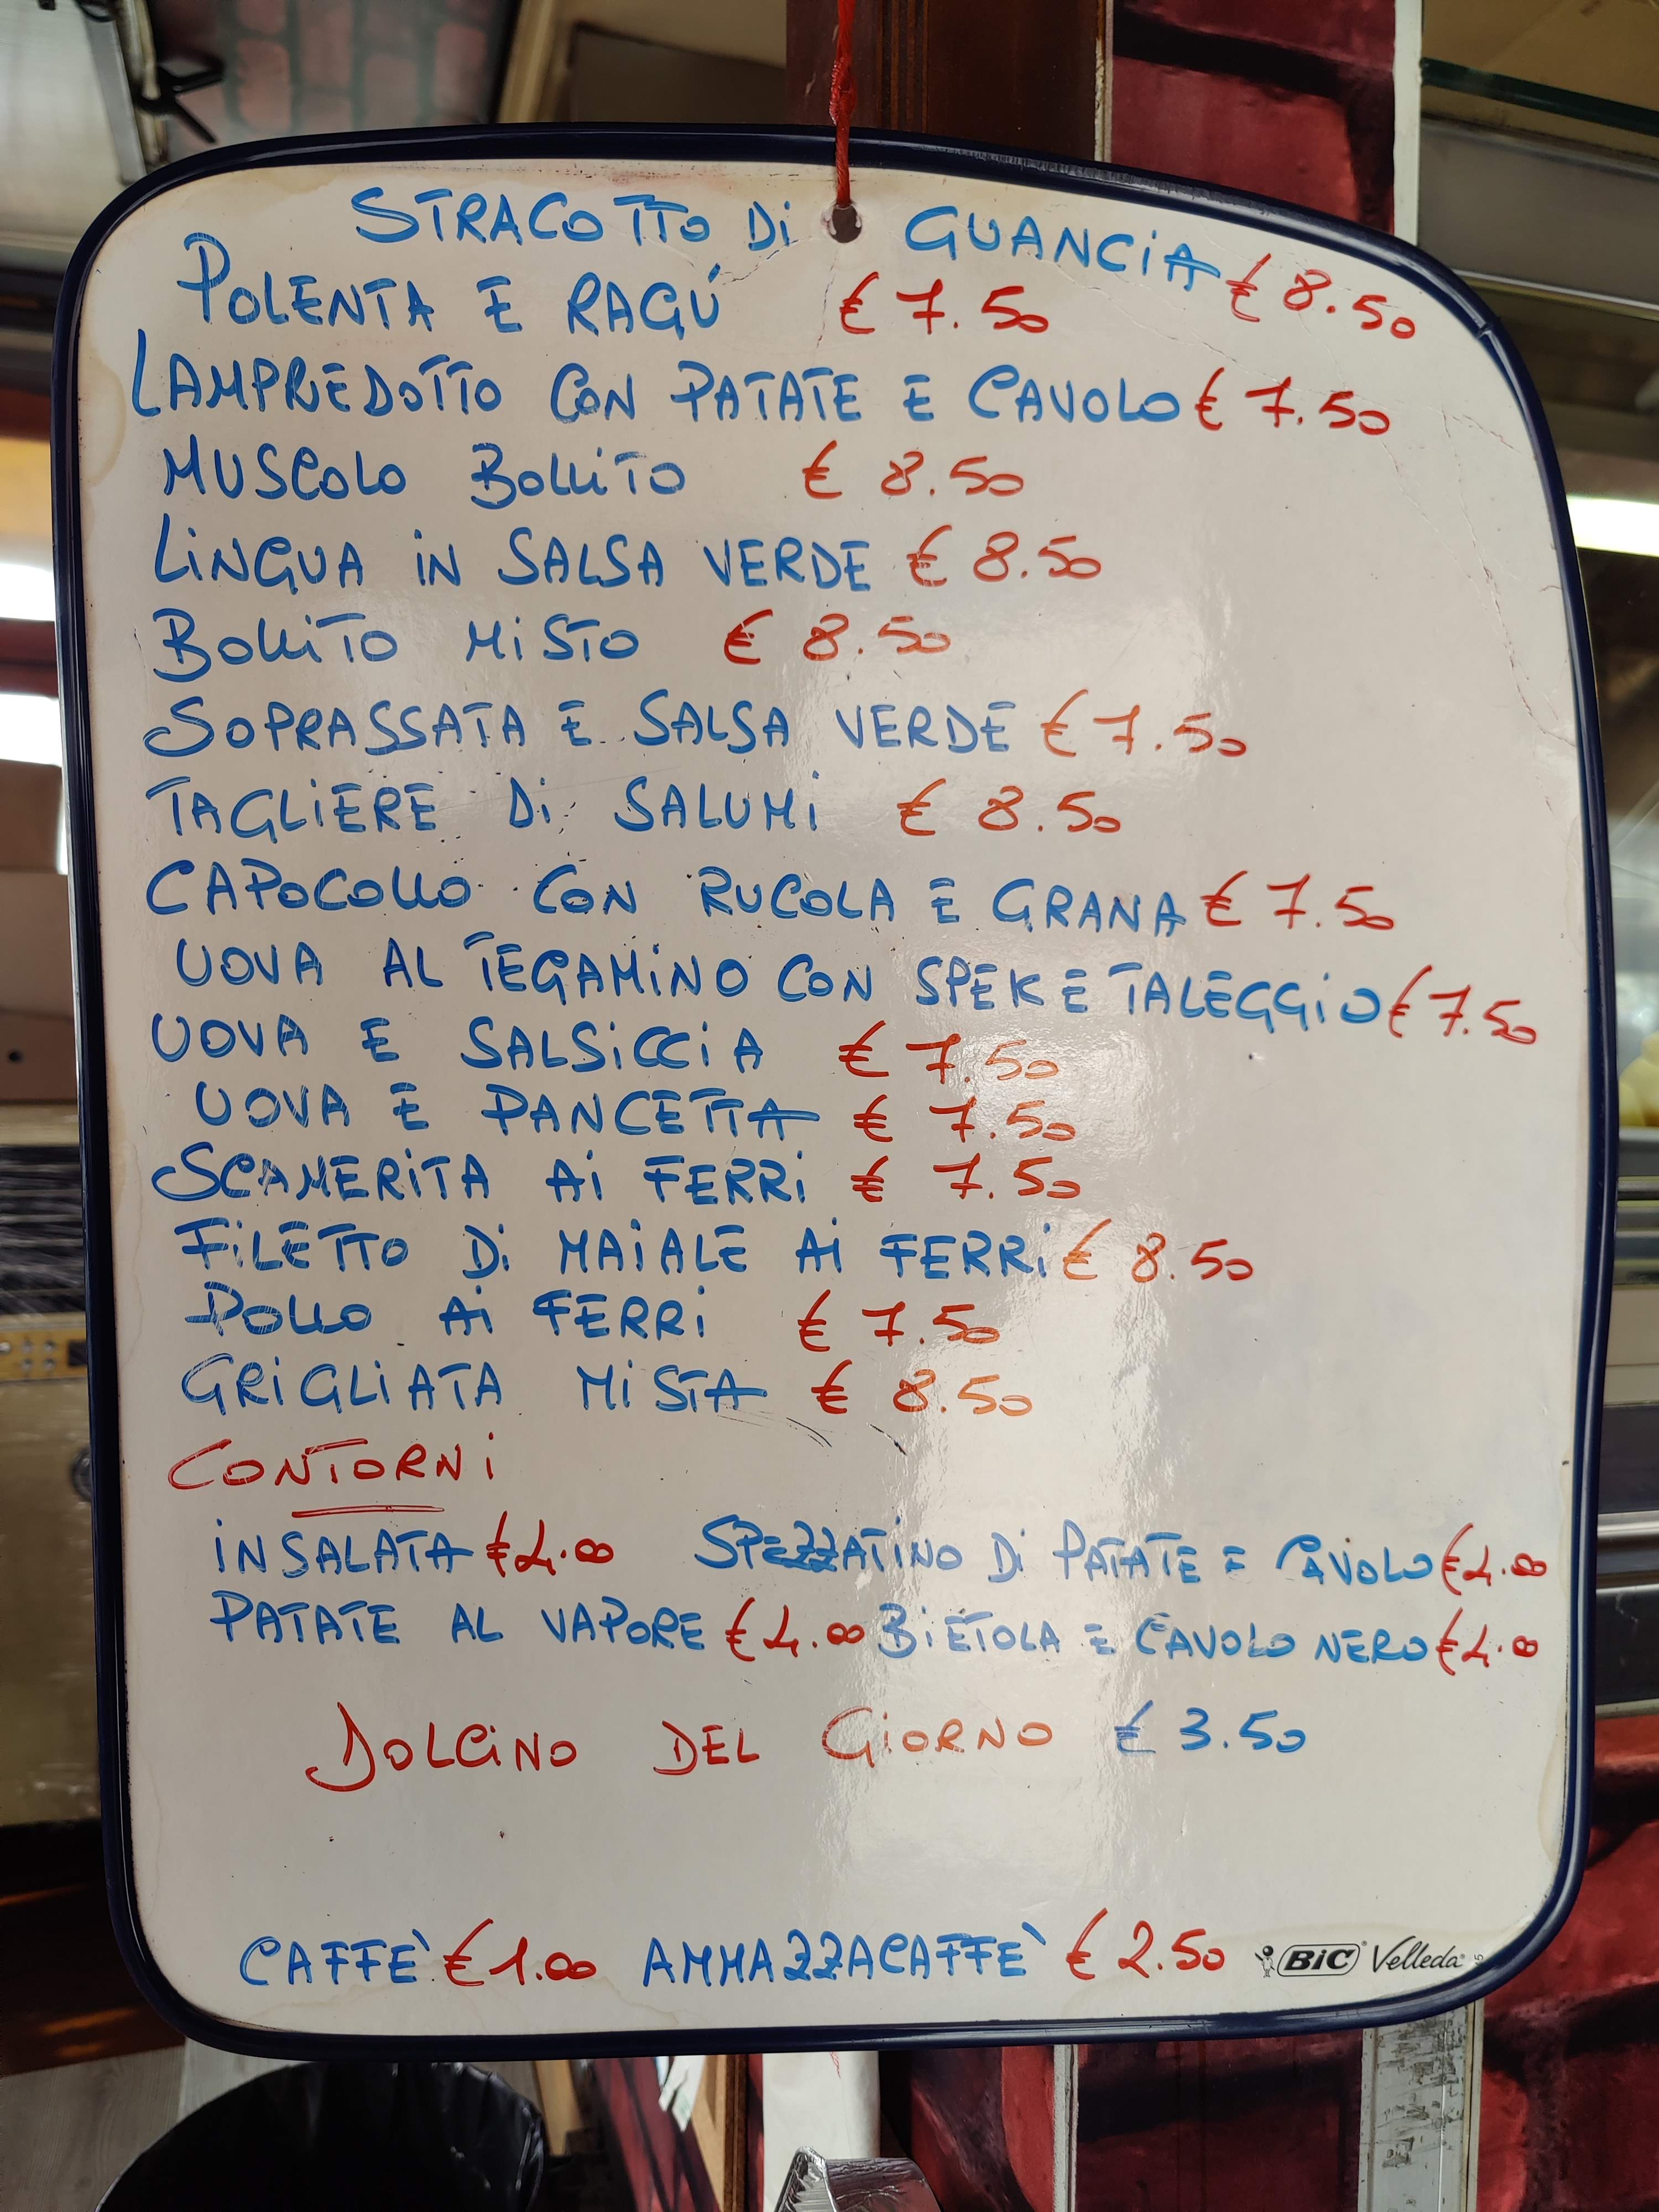 STRACOTTO Di GUANCiA € 8.50
POLENTA E RAGÚ € 7.50
LAMPREDOTTO CON PATATE E CAVOLO € 7.50
MUSCOLO BOLLiTO € 8.50
LiNGUA iN SALSA VERDE € 8.50
BOLLiTO MiSTO € 8.50
SOPRASSATA E SALSA VERDE € 7.50
TAGLiERE Di SALUMi € 8.50
CAPOCOLLO CON RUCOLA E GRANA € 7.50
UOVA AL TEGAMiNO CON SPEK E TALEGGiO € 7.50
UOVA E SALSiCCiA € 7.50
UOVA E PANCETTA € 7.50
SCAMERiTA Ai FERRi € 7.50
FiLETTO Di MAiALE Ai FERRi € 8.50
POLLO Ai FERRi € 7.50
GRiGLiATA MiSTA € 8.50
CONTORNi
iNSALATA €4.00 SPEZZATiNO Di PATATE E CAVOLO €4.00
PATATE AL VAPORE €4.00 BiETOLA E CAVOLO NERO €4.00
DOLCiNO DEL GiORNO € 3.50
CAFFÈ €1.00 AMMAZZACAFFÈ € 2.50 BiC Velleda